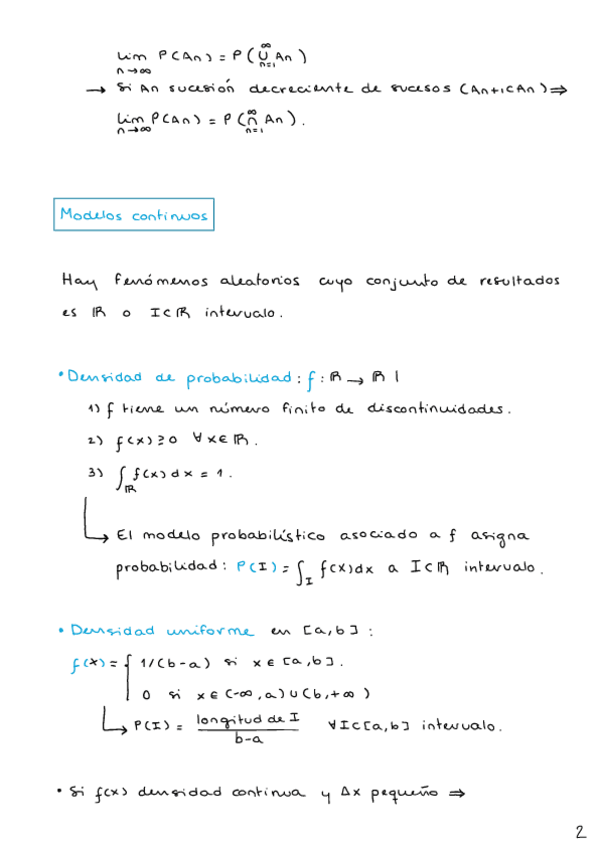 lim P(An) = P(∪ An)
n→∞ n=1 ∞
→ Si An sucesión decreciente de sucesos (An+1⊂An) ⇒
lim P(An) = P(∩ An).
n→∞ n=1 ∞
Modelos continuos
Hay fenómenos aleatorios cuyo conjunto de resultados
es ℝ o I⊂ℝ intervalo.
• Densidad de probabilidad: f: ℝ → ℝ |
1) f tiene un número finito de discontinuidades.
2) f(x) ≥ 0 ∀x∈ℝ.
3) ∫ℝ f(x)dx = 1.
↳ El modelo probabilístico asociado a f asigna
probabilidad: P(I) = ∫I f(x)dx a I⊂ℝ intervalo.
• Densidad uniforme en [a,b]:
f(x) = { 1/(b-a) si x ∈ [a,b].
0 si x ∈ (-∞,a)∪(b,+∞)
↳ P(I) = longitud de I / b-a ∀I⊂[a,b] intervalo.
• Si f(x) densidad continua y Δx pequeño ⇒
2